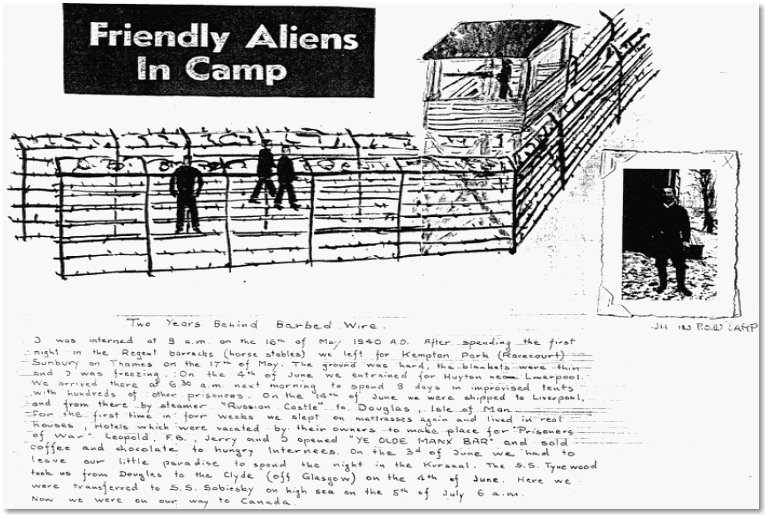 Friendly Aliens
In Camp
JH IN P.O.W CAMP
Two Years Behind Barbed Wire.
I was interned at 9 a.m. on the 16th of May 1940 A.D. After spending the first
night in the Regent barracks (horse stables) we left for Kempton Park (Racecourt)
Sunbury on Thames on the 17th of May. The ground was hard, the blankets were thin
and I was freezing. On the 4th of June we entrained for Huyton near Liverpool.
We arrived there at 6.30 a.m. next morning to spend 8 days in improvised tents
with hundreds of other prisoners. On the 14th of June we were shipped to Liverpool,
and from there by steamer "Russian Castle" to Douglas, Isle of Man.
For the first time in four weeks we slept on mattrasses again and lived in real
houses, Hotels which were vacated by their owners to make place for "Prisoners
of War". Leopold, F.B., Jerry and I opened "YE OLDE MANX BAR" and sold
coffee and chocolate to hungry Internees. On the 3d of June we had to
leave our little paradise to spend the night in the Kursaal. The S.S. Tynewood
took us from Douglas to the Clyde (off Glasgow) on the 4th of June. Here we
were transferred to S.S. Sobiesky on high sea on the 5th of July 6 a.m.
Now we were on our way to Canada.